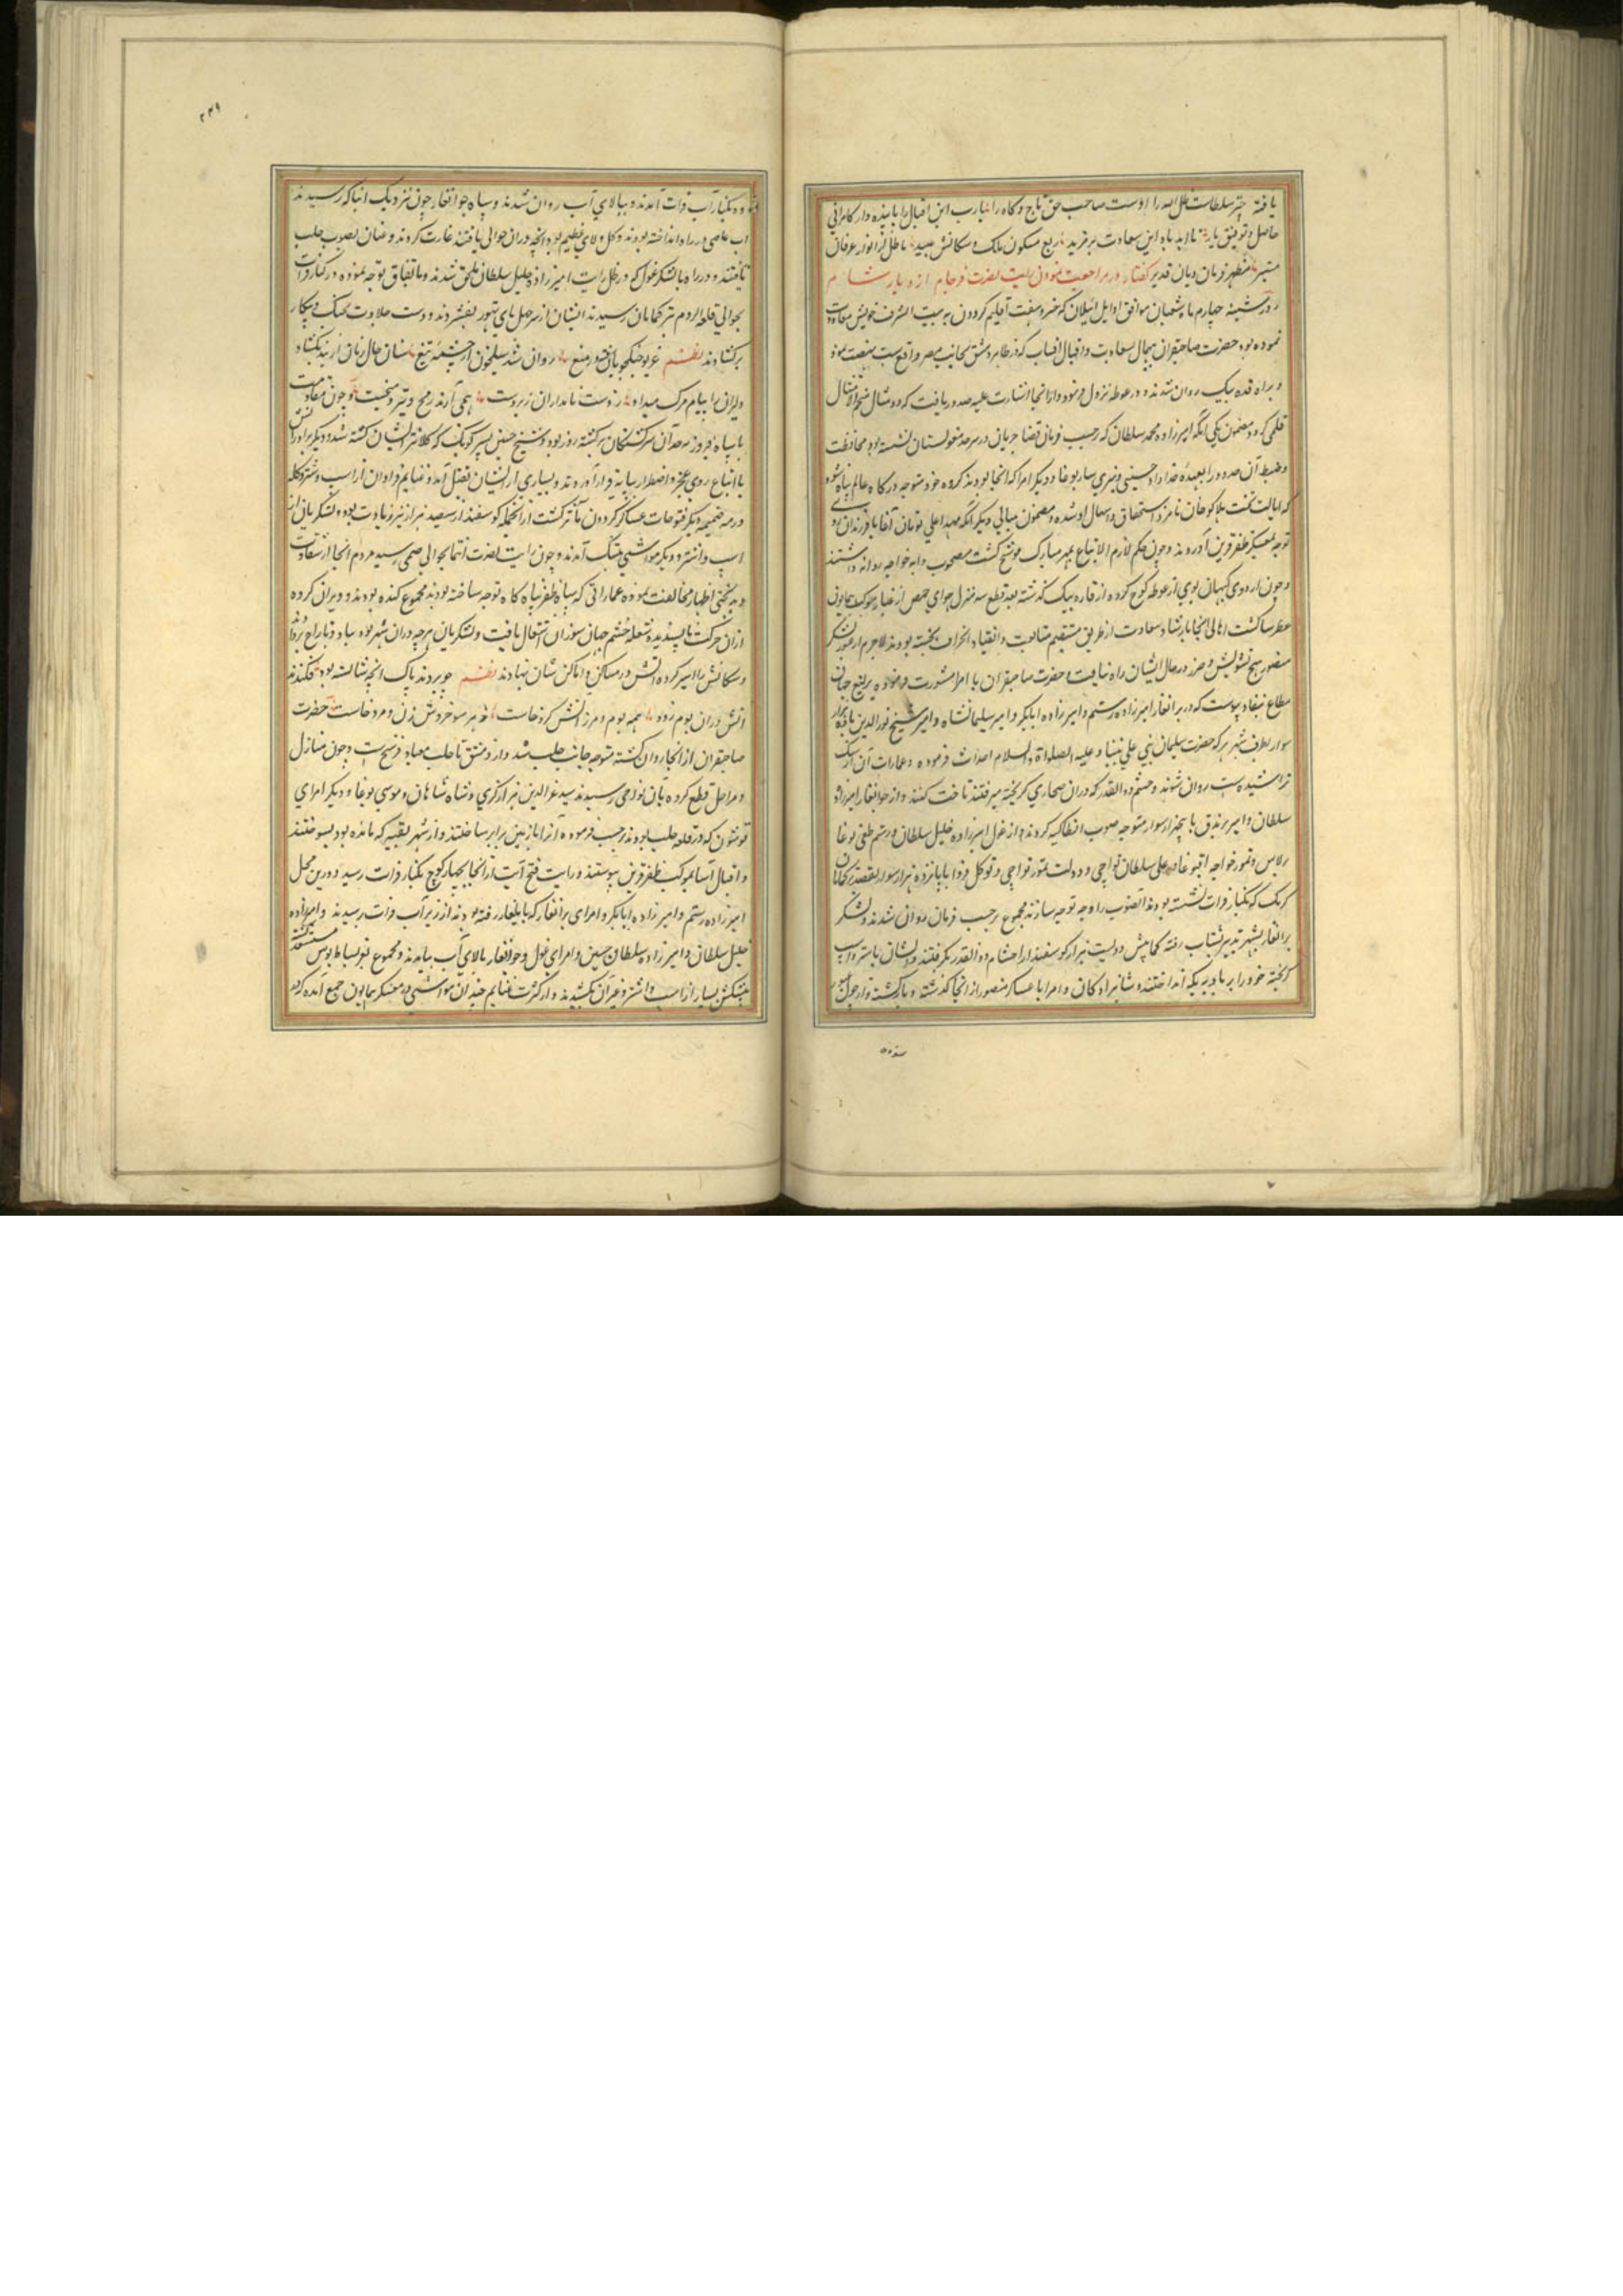 یافته چتر سلطنت ظل الله را اوست صاحب حق تاج و کاه را یارب این اقبال را پاینده دار کامرانی
حاصل و توفیق یار تا ابد باد این سعادت بر مزید ربع مسکون ملک و سکانش عبید باطل از انوار عرفان
مظهر فرمان دیان قدیر گفتار در مراجعت نمودن رایت نصرت فرجام از دیار شام
روز شنبه چهارم ماه شعبان موافق اوایل ئیلان که خسرو هفت اقلیم گردون به بیت الشرف خویش معاودت
نموده بود حضرت صاحبقران بهجال سعادت و اقبال از قبیبات که در ظاهر دمشق بجانب مصر واقعست نهضت نمود
و براه قده بیک روان شدند و در غوطه نزول فرمود و از انجا اشارت علیه صدور یافت که دو مثال
قلمی کردد مضمون یکی آنکه امیرزاده محمد سلطان که حسب فرمان قضا جریان در سرحد مغولستان نشسته بود محافظت
و ضبط آن حدود را بعهدهٔ خداداد حسینی و بیردی ساربوغا و دیگر امرا که انجا بودند کرده خود متوجه درکاه عالم پناه شود
که ایالت تخت هلاکو خان نامزد استحقاق و استیهال او شده و مضمون مثالی دیگر آنکه مهد اعلی تومان آغا با فرزندان
توجه بمعسکر ظفرقرین آورند و چون حکم لازم الاتباع بمهر مبارک موشح کشت مصحوب دابه خواجه روانه داشتند
و چون اردوی کیهان پوی از غوطه کوچ کرده از قاره بیک کذشته بعد قطع سه منزل هوای حمص از غبار موکب همایون
عطرسا کشت اهالی انجا بارشاد سعادت از طریق مستقیم متابعت و انقیاد انحراف نجسته بودند لاجرم از عبور لشکر
منصور هیچ تشویش و ضرر در حال ایشان راه نیافت حضرت صاحبقران با امرا مشورت فرموده یرلیغ جهان
مطاع بنفاد پیوست که در برانغار امیرزاده رستم و امیرزاده ابابکر و امیر سلیمانشاه و امیر شیخ نورالدین با ده هزار
سوار بطرف شهر که حضرت سلیمان نبی علی نبینا و علیه الصلواة والسلام احداث فرموده و عمارات آن از سنک
تراشیده است روان شوند و حشم ذو القدر که در ان صحاری کریخته میرفتند تاخت کنند و از جوانغار امیرزاده
سلطان و امیر برندق با پنجهزار سوار متوجه صوب انطاکیه کردند و از غول امیرزاده خلیل سلطان و رستم طغی بوغا
برلاس و تمور خواجه اقبوغا و علی سلطان تواچی و دولت تمور تواچی و توکل قرقرا با پانزده هزار سوار بقصد ترکمانان
کوبک که بکنار فرات نشسته بودند انصوب را وجه توجه سازند مجموع بر حسب فرمان روان شدند و لشکر
برانغار بشهر تدمر شتاب رفته کمابیش دویست هزار کوسفند از احشام ذو القدر بکرفتند و ایشان باستر و اسب
کریخته خود را بر بادیه یکه انداختند و شاهزادکان و امرا با عساکر منصور از انجا کذشته و بازکشته و از جول
وده بکنار آب فرات آمدند و ببالای آب روان شدند و سپاه جوانغار چون نزدیک انطاکیه رسیدند
آب عاصی در راه انداخته بودند و کل ولای عظیم بود انچه در ان حوالی یافتند غارت کردند و عنان بصوب حلب
تافتند و در راه با لشکر غول که در ظل رایت امیرزاده خلیل سلطان ملحق شدند و باتفاق توجه نموده در کنار فرات
بحوالی قلعه الروم بترکمانان رسیدند ایشان از سر جهل پای تهور بفشردند و دست جلادت بجنک و پیکار
برکشادند نظم غریو جنکجویان روان شد سیل خون از چشمهٔ تیغ سنان حال زبان
دلیران را پیام مرک میداد ز دست نامداران زبردست همی آرند رمح و تیر و چون مقاومت
با سپاه فیروز نه حد آن سرکشتکان برکشته روز بود و شیخ حسین پسر کوبک که کلانتر ایشان کشته شد و دیگر برادرانش
با اتباع روی عجز و اضطرار بپایه فرار آوردند و بسیاری از ایشان بقتل آمد و غنایم فراوان از اسب و شتر و کله
و رمه ضمیمه دیگر فتوحات عساکر کردون ماثر کشت از انجمله کوسفند از سیصد هزار نیز زیادت بود و لشکریان از
اسب و اشتر و دیگر مواشی بتنک آمدند و چون رایت نصرت انتما بحوالی حمی رسید مردم انجا از شقاوت
و بدبختی اظهار مخالفت نموده عماراتی که سپاه ظفرپناه کاه توجه ساخته بودند مجموع کنده بودند و ویران کرده
از ان حرکت ناپسندیده شعله خشم جهان سوز ان اشتعال یافت و لشکریان هرچه در ان شهر بود بباد تاراج بردادند
و سکانش را اسیر کرده آتش در مساکن و اماکن شان نهادند نظم چو بردند پاک انچه شایسته بود فکندند
اتش در ان بوم زود همه بوم و مرز آتش کرد خاست ز هر سو خروش زن و مرد خاست حضرت
صاحبقران از انجا روان کشته متوجه جانب حلب شد و از دمشق تا حلب هفتاد فرسخ است و چون منازل
و مراحل قطع کرده بان نواحی رسیدند سید عزالدین هزارکری و شاه شاهان و موسی بوغا و دیگر امرای
قوشون که در قلعه حلب بودند حسب فرموده آنرا با زمین برابر ساختند و از شهر بقیه که مانده بود بسوختند
و اقبال آسا بموکب ظفرقرین پیوستند و رایت فتح آیت از انجا بچهار کوچ بکنار فرات رسید و درین محل
امیرزاده رستم و امیرزاده ابابکر و امرای برانغار که بایلغار رفته بودند از زیر آب فرات رسیدند و امیرزاده
خلیل سلطان و امیرزاده سلطان حسین و امرای غول و جوانغار بالای آب بیامدند و مجموع بعز بساط بوس مستسعد شده
پیشکش بسیار از اسب و اشتر و غیر آن بکشیدند و از کثرت غنایم چندان مواشی در معسکر همایون جمع آمده که در
۲۴۹